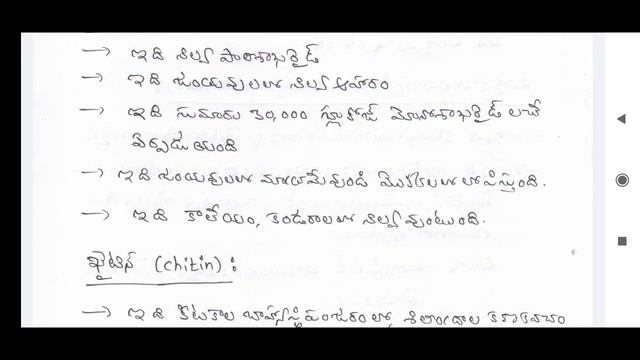 → ఇది నిల్వ పాలీశాఖరైడ్
→ ఇది జంయవులలో నిల్వ ఆహారం
→ ఇది సుమారు 30,000 గ్లూకోజ్ మోనోశాఖరైడ్ లచే
ఏర్పడు తుంది
→ ఇది జంయవులలో మాత్రమేవుండి మొక్కలలో లోపిస్తుంది.
→ ఇది కాలేయం, కండరాలలో నిల్వ వుంటుంది.
ఖైటిన్ (chitin) :
→ ఇది కీటకాల బాహ్యాస్థిపంజరంలో, శిలీంద్రాల కణకవచం